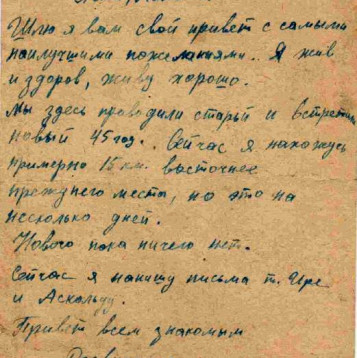 Шлю я вам свой привет с самыми
наилучшими пожеланиями. Я жив
и здоров, живу хорошо.
Мы здесь проводили старый и встретили
новый 45 год. Сейчас я нахожусь
примерно 15 км. восточнее
прежнего места, но это на
несколько дней.
Нового пока ничего нет.
Сейчас я напишу письма т. Ире
и Аскольду.
Привет всем знакомым